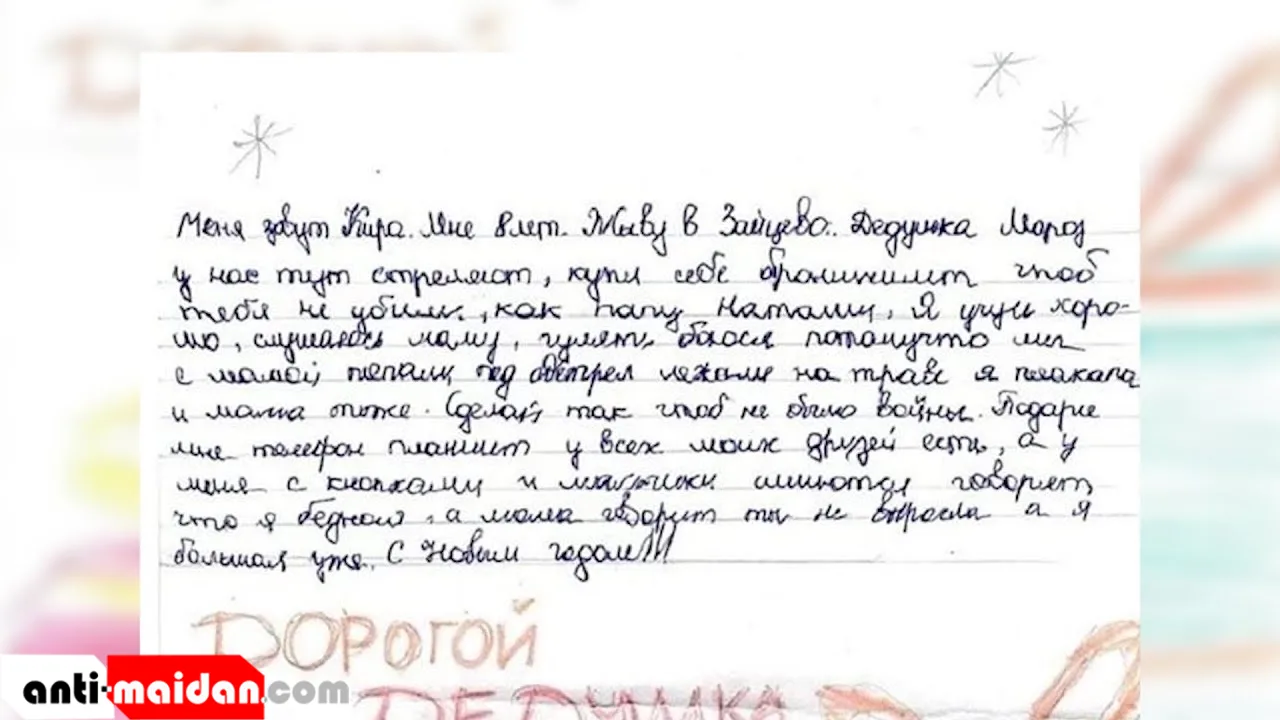 Меня зовут Кира. Мне 8 лет. Жыву в Зайцево. Дедушка Мороз
у нас тут стреляют, купи себе бронижилит чтоб
тебя не убили, как папу Наташи. Я учусь хоро-
шо, слушаюсь маму, гулять боюся потамучто мы
с мамай попали под обстрел лежали на траве я плакала
и мама тоже. Сделай так чтоб не было войны. Подари
мне телефон планшит у всех моих друзей есть, а у
меня с кнопками и мальчики смиются говорят
что я бедная, а мама говорит ты не выросла а я
большая уже. С Новым годом!!!
ДОРОГОЙ
ДЕДУШКА
anti-maidan.com